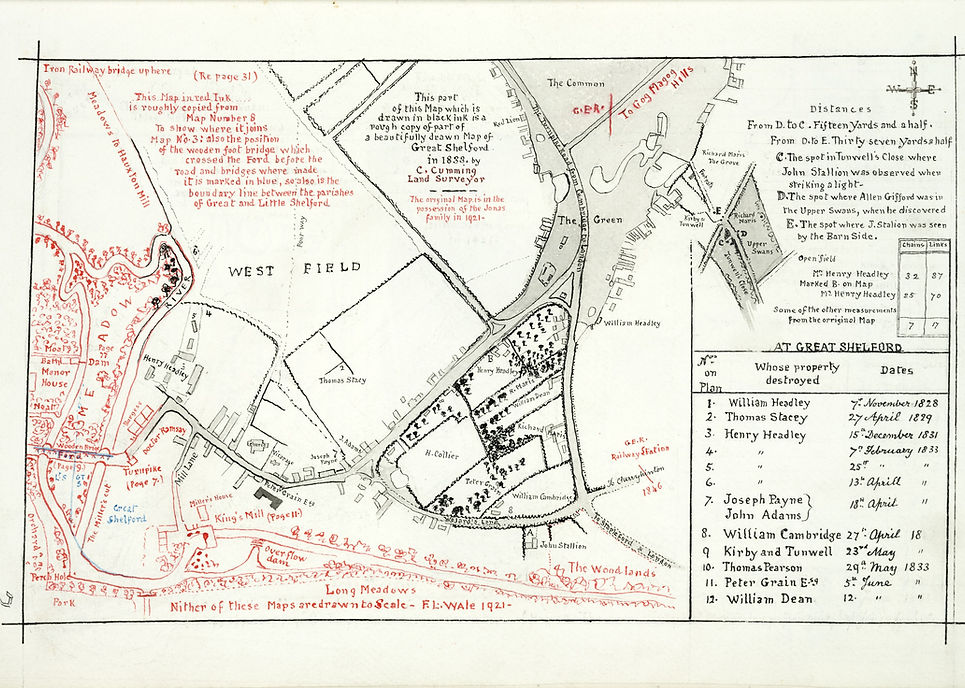 Iron Railway bridge up here
(Re page 31)
This Map in red Ink
is roughly copied from
Map Number 8
To show where it joins
Map No 3; also the position
of the wooden foot bridge which
crossed the Ford before the
road and bridges where made
it is marked in blue, so also is the
boundary line between the parishes
of Great and Little Shelford
This part
of this Map which is
drawn in black ink is a
rough copy of part of
a beautifully drawn Map of
Great Shelford
in 1833. by
C. Cumming
Land Surveyor
The original Map is in the
possession of the Jonas
family in 1921-
Meadows to Hauxton Mill
Red Lion
The Common
G.E.R.
To Gog Magog
Hills
The Turnpike road from Cambridge to London
The
Green
WEST FIELD
RIVER
THE MEADOW
Page
77
Moat
Bath
Dam
Manor
House
Moat
Wooden Bridge
Ford
(Page 9)
Turnpike
(Page 7.)
Doctor Ramsay
Mill Lane
Henry Headley
4
5
Thomas Stacey
2
Church
Vicarage
Joseph
Payne
J. Adams
7
Peter Grain Esq
Great
Shelford
The Miller's cut
Miller's House
King's Mill (Page 11)
Over flow
dam
Orchard
Perch Hole
Park
Long Meadows
The Woodlands
Nither of these Maps are drawn to Scale - F.L. WALE 1921-
William Headley
Henry Headley
R. Maris
William Dean
Richard Maris
H. Collier
Peter Grain
William Cambridge
8
John Stallion
A
B
G.E.R.
Railway Station
1846
To Stapleford & London
Richard Maris
The Grove
Kirby &
Tunwell
Richard
Maris
Upper
Swans
Tunwell's Close
E
D
C
N
W E
S
Distances
From D. to C. Fifteen Yards and a half.
From D. to E. Thirty seven Yards a half
C. The spot in Tunwell's Close where
John Stallion was observed when
striking a light-
D. The spot where Allen Gifford was in
the Upper Swans, when he discovered
E. The spot where J. Stalion was seen
by the Barn Side.
Chains Links
Open field
Mr Henry Headley 32 87
Marked B. on Map
Mr Henry Headley 25 70
Some of the other measurements
from the orriginal Map
7 17
AT GREAT SHELFORD
Nos on Plan
Whose property destroyed
Dates
1. William Headley 7th November 1828
2. Thomas Stacey 27 April 1829
3. Henry Headley 15th December 1831
4. " 7th February 1833
5. " 25th " "
6. " 13th Aprill "
7. Joseph Payne } John Adams 18th April "
8. William Cambridge 27th April 18
9 Kirby and Tunwell 23rd May "
10. Thomas Pearson 29th May 1833
11. Peter Grain Esq 5th June "
12. William Dean 12. " "